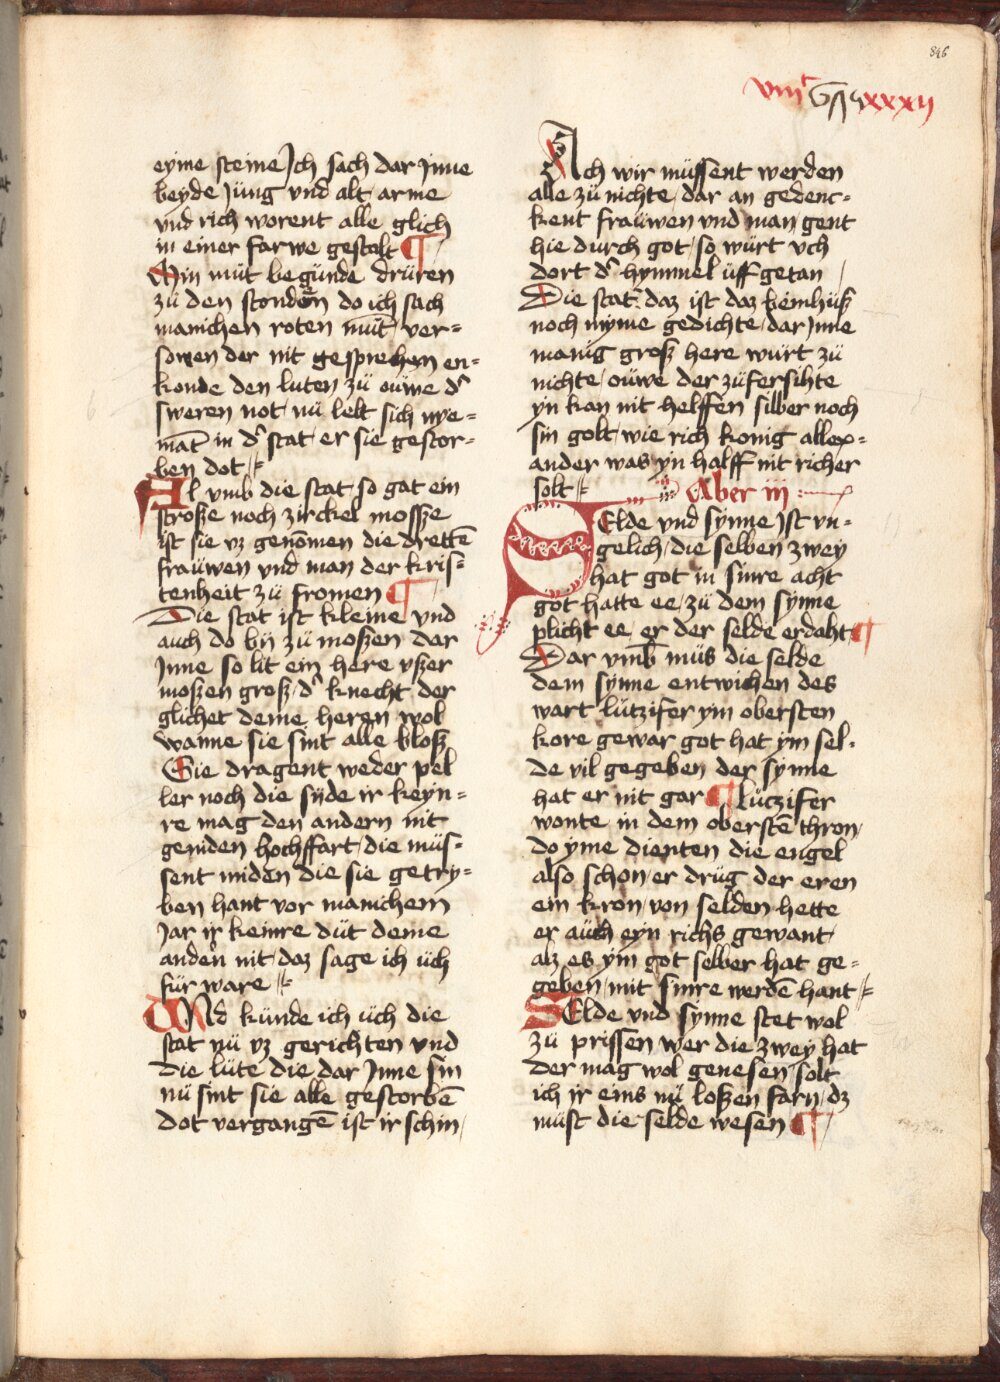 846
viiijᶜ vnd xxxij
eyme steine Ich sach dar Inne
beyde Jüng vnd alt arme
vnd rich worent alle glich
in einer farwe gestolt ¶
Min müt begünde drüren
zü den stonden do ich sach
manichen roten mūt ver=
sowen der nit gesprechen en=
konde den luten zü ouwe dˀ
sweren not nü lebt sich nye=
māt in dˀ stat er sie gestor=
ben dot
Al vmb die stat so gat ein
strosze noch zirckel mossze
ist sie vz genōmen die drettē
frauwen vnd man der kris=
tenheit zü fromen ¶
Die stat ist kleine vnd
auch do by zü moszen dar
Inne so lit ein here vszer
moszen grosz dˀ knecht der
glichet deme heren wol
wanne sie sint alle blosz
Sie dragent weder pel
ler noch die syde ir keyn=
re mag den andern nit
geniden hochffart die müs=
sent midan die sie getry=
ben hant vor manichem
Jar ir keinre düt deme
andern nit daz sage ich üch
für ware
Und künde ich üch die
stat nü vz gerichten vnd
die lüte die dar Inne sin
nü sint sie alle gestorbē
dot vergangē ist ir schin
Ach wir müssent werden
alle zü nichte dar an gedenc=
kent frauwen vnd man gent
hie durch got so würt vch
dort dˀ hymmel üff getan
Die stat daz ist daz beinhüsz
noch myme gedichte dar Inne
manig grosz here würt zü
nichte ouwe der züfersihte
yn kan nit helffen silber noch
sin golt wie rich konig allex=
ander was yn halff nit richer
solt
Aber iij
Selde vnd synne ist vn=
gelich die selben zwey
hat got in sinre acht
got hatte ee zü dem synne
plicht ee er der selde erdaht ¶
Dar vmb müs die selde
dem synne entwichen des
wart lützifer ym obersten
kore gewar got hat ym sel=
de vil gegeben der synne
hat er nit gar ¶ lüczifer
wonte in dem oberstē thron
do yme dienten die engel
also schon er drüg der eren
ein kron von selden hette
er auch eyn richs gewant
alz es ym got selber hat ge=
geben mit sinre werdē hant
Selde vnd synne stet wol
zü prissen wer die zwey hat
der mag wol genesen solt
ich ir eins nü loszen farn dz
müst die selde wesen ¶